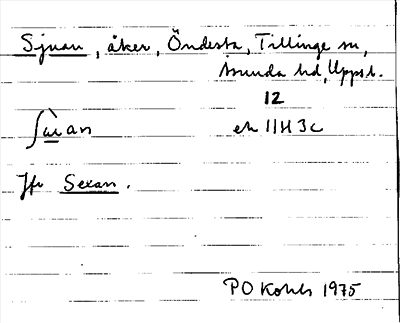 Sjuan, åker, Öndesta, Tillinge sn,
Åsunda hd, Uppsl.
12
ek 11H 3c
Jfr Sexan.
PO Kohls 1975